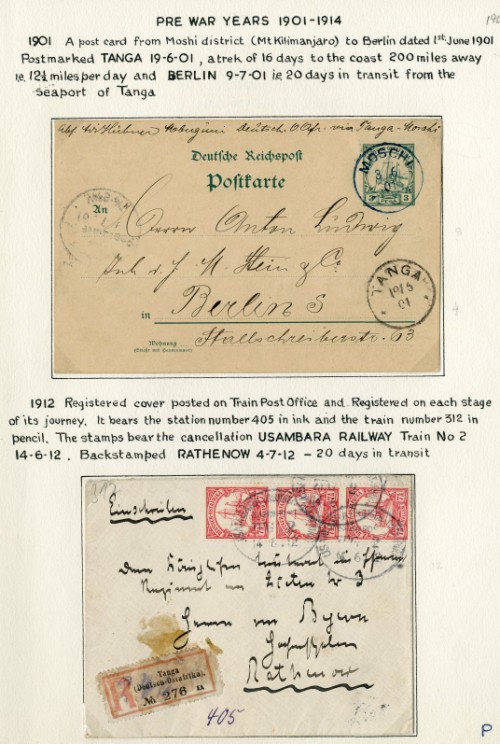 PRE WAR YEARS 1901-1914
1901 A post card from Moshi district (Mt Kilimanjaro) to Berlin dated 1st June 1901
Postmarked TANGA 19-6-01, a trek of 16 days to the coast 200 miles away
ie. 12½ miles per day and BERLIN 9-7-01 ie 20 days in transit from the
seaport of Tanga
Deutsch. O. Afr. via Tanga-Moschi
Deutsche Reichspost
Postkarte
MOSCHI
01
3
An
Herrn Anton Ludwig
Inh. d. f. M. Hein & Co.
TANGA
19/6
01
in Berlin S
Stallschreiberstr. 63
Wohnung
(Straße und Hausnummer)
1912 Registered cover posted on Train Post Office and Registered on each stage
of its journey. It bears the station number 405 in ink and the train number 312 in
pencil. The stamps bear the cancellation USAMBARA RAILWAY Train No 2
14-6-12. Backstamped RATHENOW 4-7-12 - 20 days in transit
312
Einschreiben
Regiment von Zieten Nr 3
Herrn von
Rathenow
Tanga
(Deutsch-Ostafrika).
№ 276 a
405
P